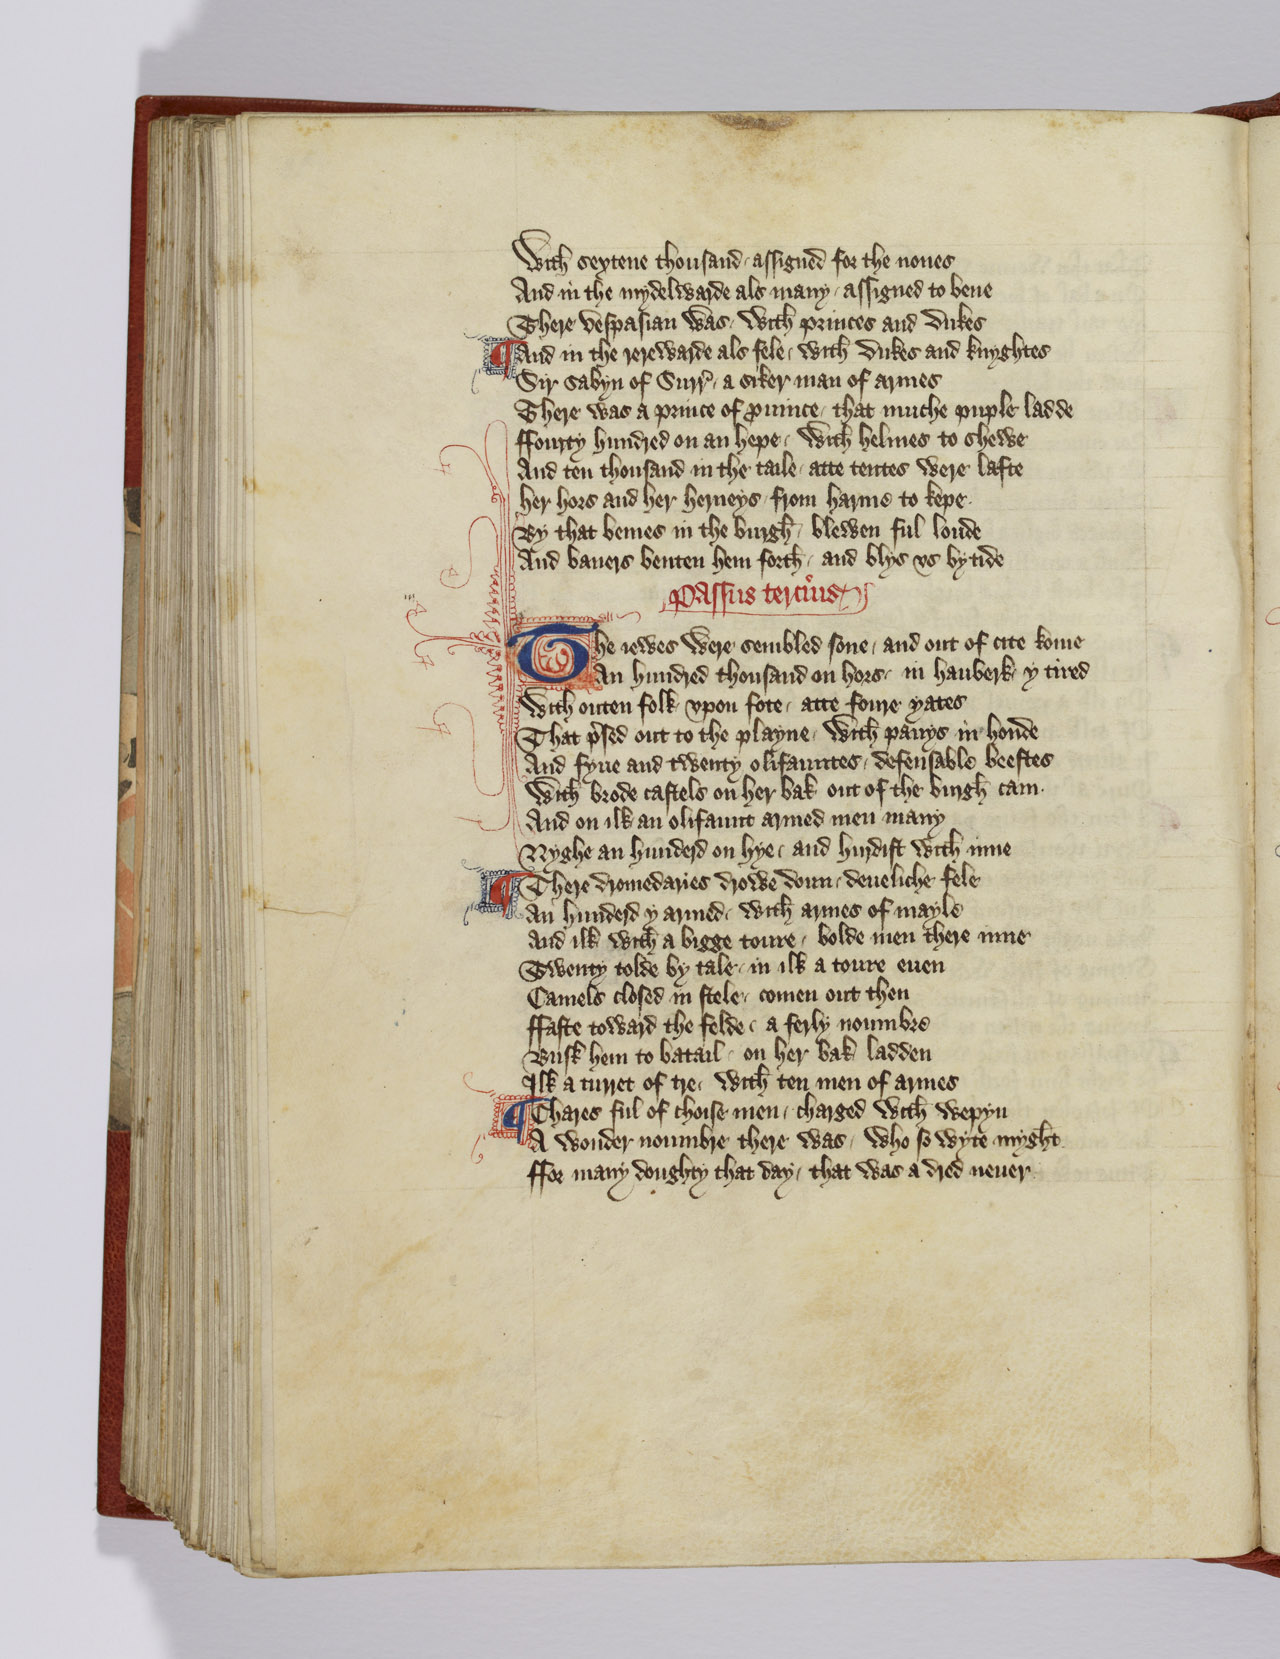 With sextene thousand assigned for the nones
And in the mydelwarde als many assigned to bene
There vespasian was with princes and dukes
And in the rerewarde als fele with dukes and knyghtes
Sir sabyn of Surr' a siker man of armes
There was a prince of prouince that muche puple ladde
ffourty hundred on an hepe with helmes to shewe
And ten thousand in the taile atte tentes were lafte
her hors and her herneys from harme to kepe
By that bemes in the burgh blewen ful loude
And baners benten hem forth and blys vs bytide
Passus tercius
The iewes were sembled sone and out of cite kome
An hundred thousand on hors in hauberk y tired
With outen folk vpon fote atte foure yates
That p'sed out to the playne with pauys in honde
And fyue and twenty olifauntes defensable beestes
With brode castels on her bak out of the burgh cam
And on ilk an olifaunt armed men many
Nyghe an hunderd on hye and hurdist with inne
There dromedaries drowe doun deueliche fele
An hunderd y armed with armes of mayle
And ilk with a bigge toure bolde men there inne
Twenty tolde by tale in ilk a toure euen
Camels closed in stele comen out then
ffaste toward the felde a ferly noumbre
Busk hem to batail on her bak ladden
Ilk a turret of tre with ten men of armes
Chares ful of choise men charged with wepyn
A wonder noumbre there was who so wyte myght
ffor many doughty that day that was a dred neuer